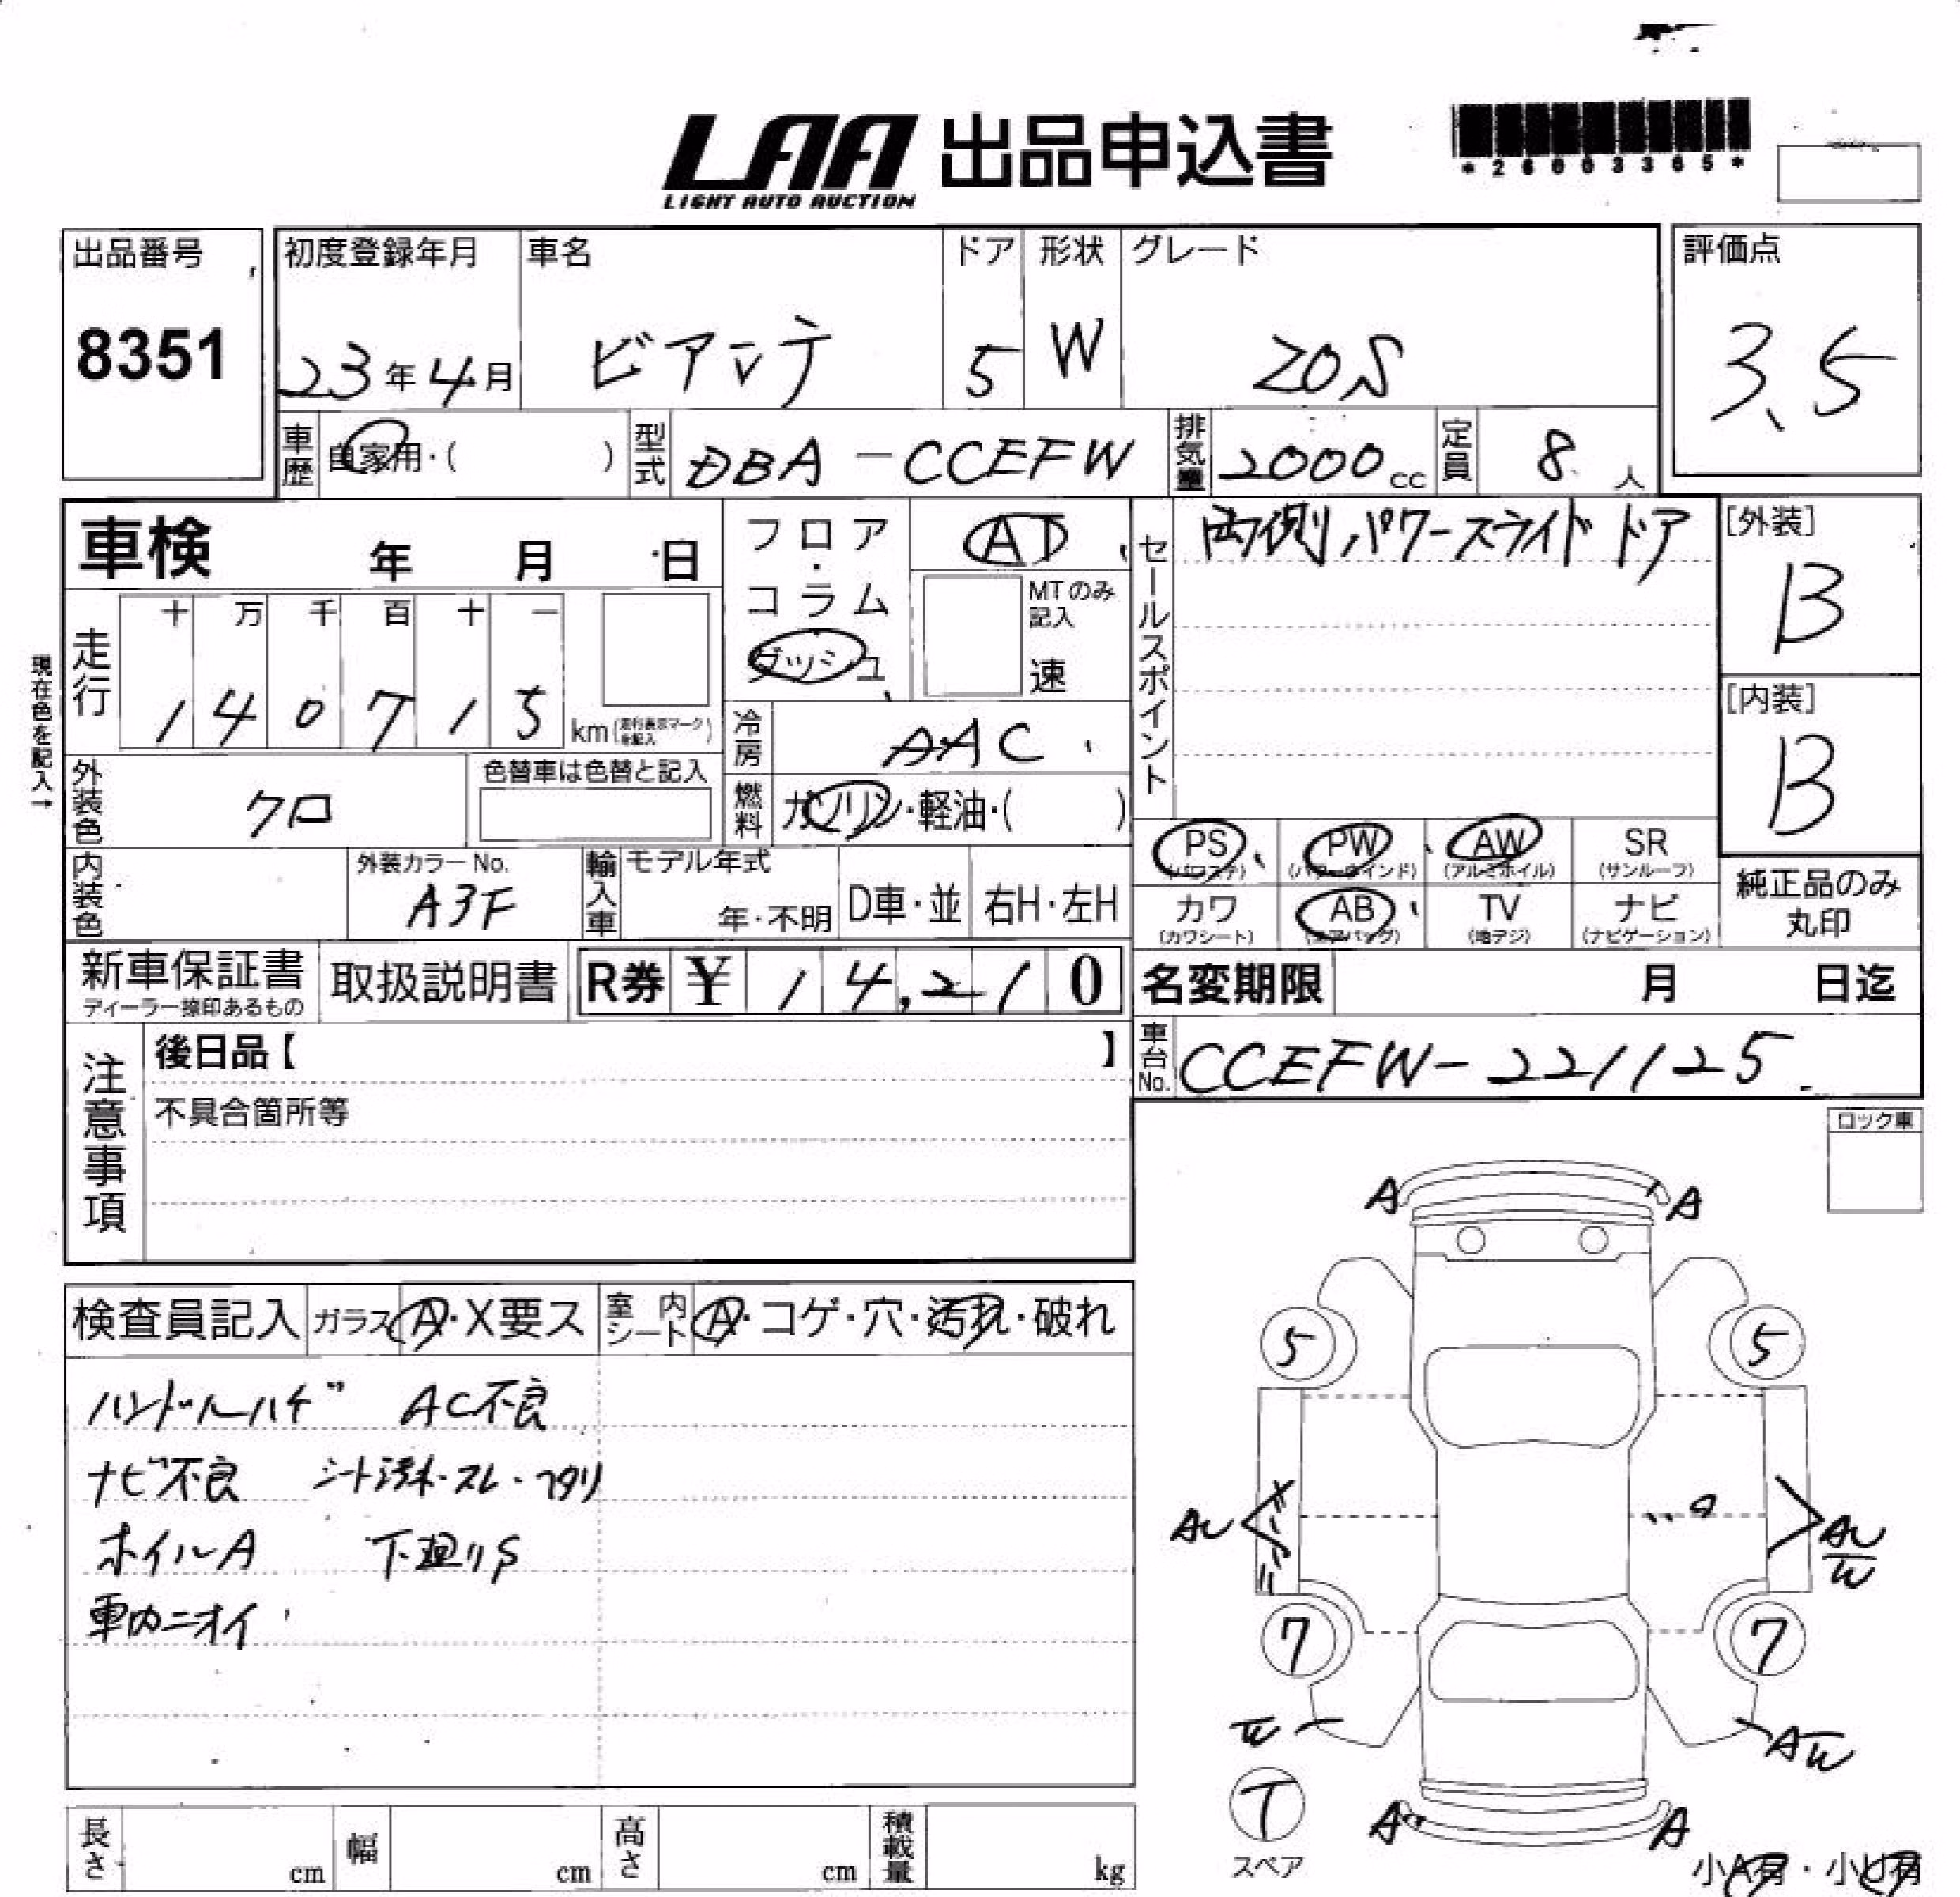 LAA 出品申込書
LIGHT AUTO AUCTION
*26003365*
出品番号 初度登録年月 車名 ドア 形状 グレード 評価点
8351 23年4月 ビアンテ 5 W 20S 3.5
車歴 自家用・( ) 型式 DBA-CCEFW 排気量 2000cc 定員 8人
車検 年 月 日
フロア・コラム ダッシュ
AT
MTのみ記入
速
セールスポイント
両側パワースライドドア
[外装]
B
[内装]
B
現在色を記入→
走行
十 万 千 百 十 一
1 4 0 7 1 5 km (走行表示マークを記入)
冷房 AAC
外装色 クロ 色替車は色替と記入
燃料 ガソリン・軽油・( )
PS (パワステ) PW (パワーウインド) AW (アルミホイル) SR (サンルーフ)
カワ (カワシート) AB (エアバッグ) TV (地デジ) ナビ (ナビゲーション)
純正品のみ
丸印
内装色 外装カラーNo. A3F 輸入車 モデル年式 年・不明 D車・並 右H・左H
新車保証書 ディーラー捺印あるもの 取扱説明書 R券 ¥ 14,210
名変期限 月 日迄
車台No. CCEFW-221125
注意事項
後日品【 】
不具合箇所等
ロック車
検査員記入 ガラス A・X要ス 室内シート A・コゲ・穴・汚れ・破れ
ハンドルハゲ AC不良
ナビ不良 シート汚れ・スレ・ヘタリ
ホイルA 下廻りS
車内ニオイ
A A
5 5
AU AU
W
7 7
W AW
T
スペア
A A
小A有・小U有
長さ cm 幅 cm 高さ cm 積載量 kg